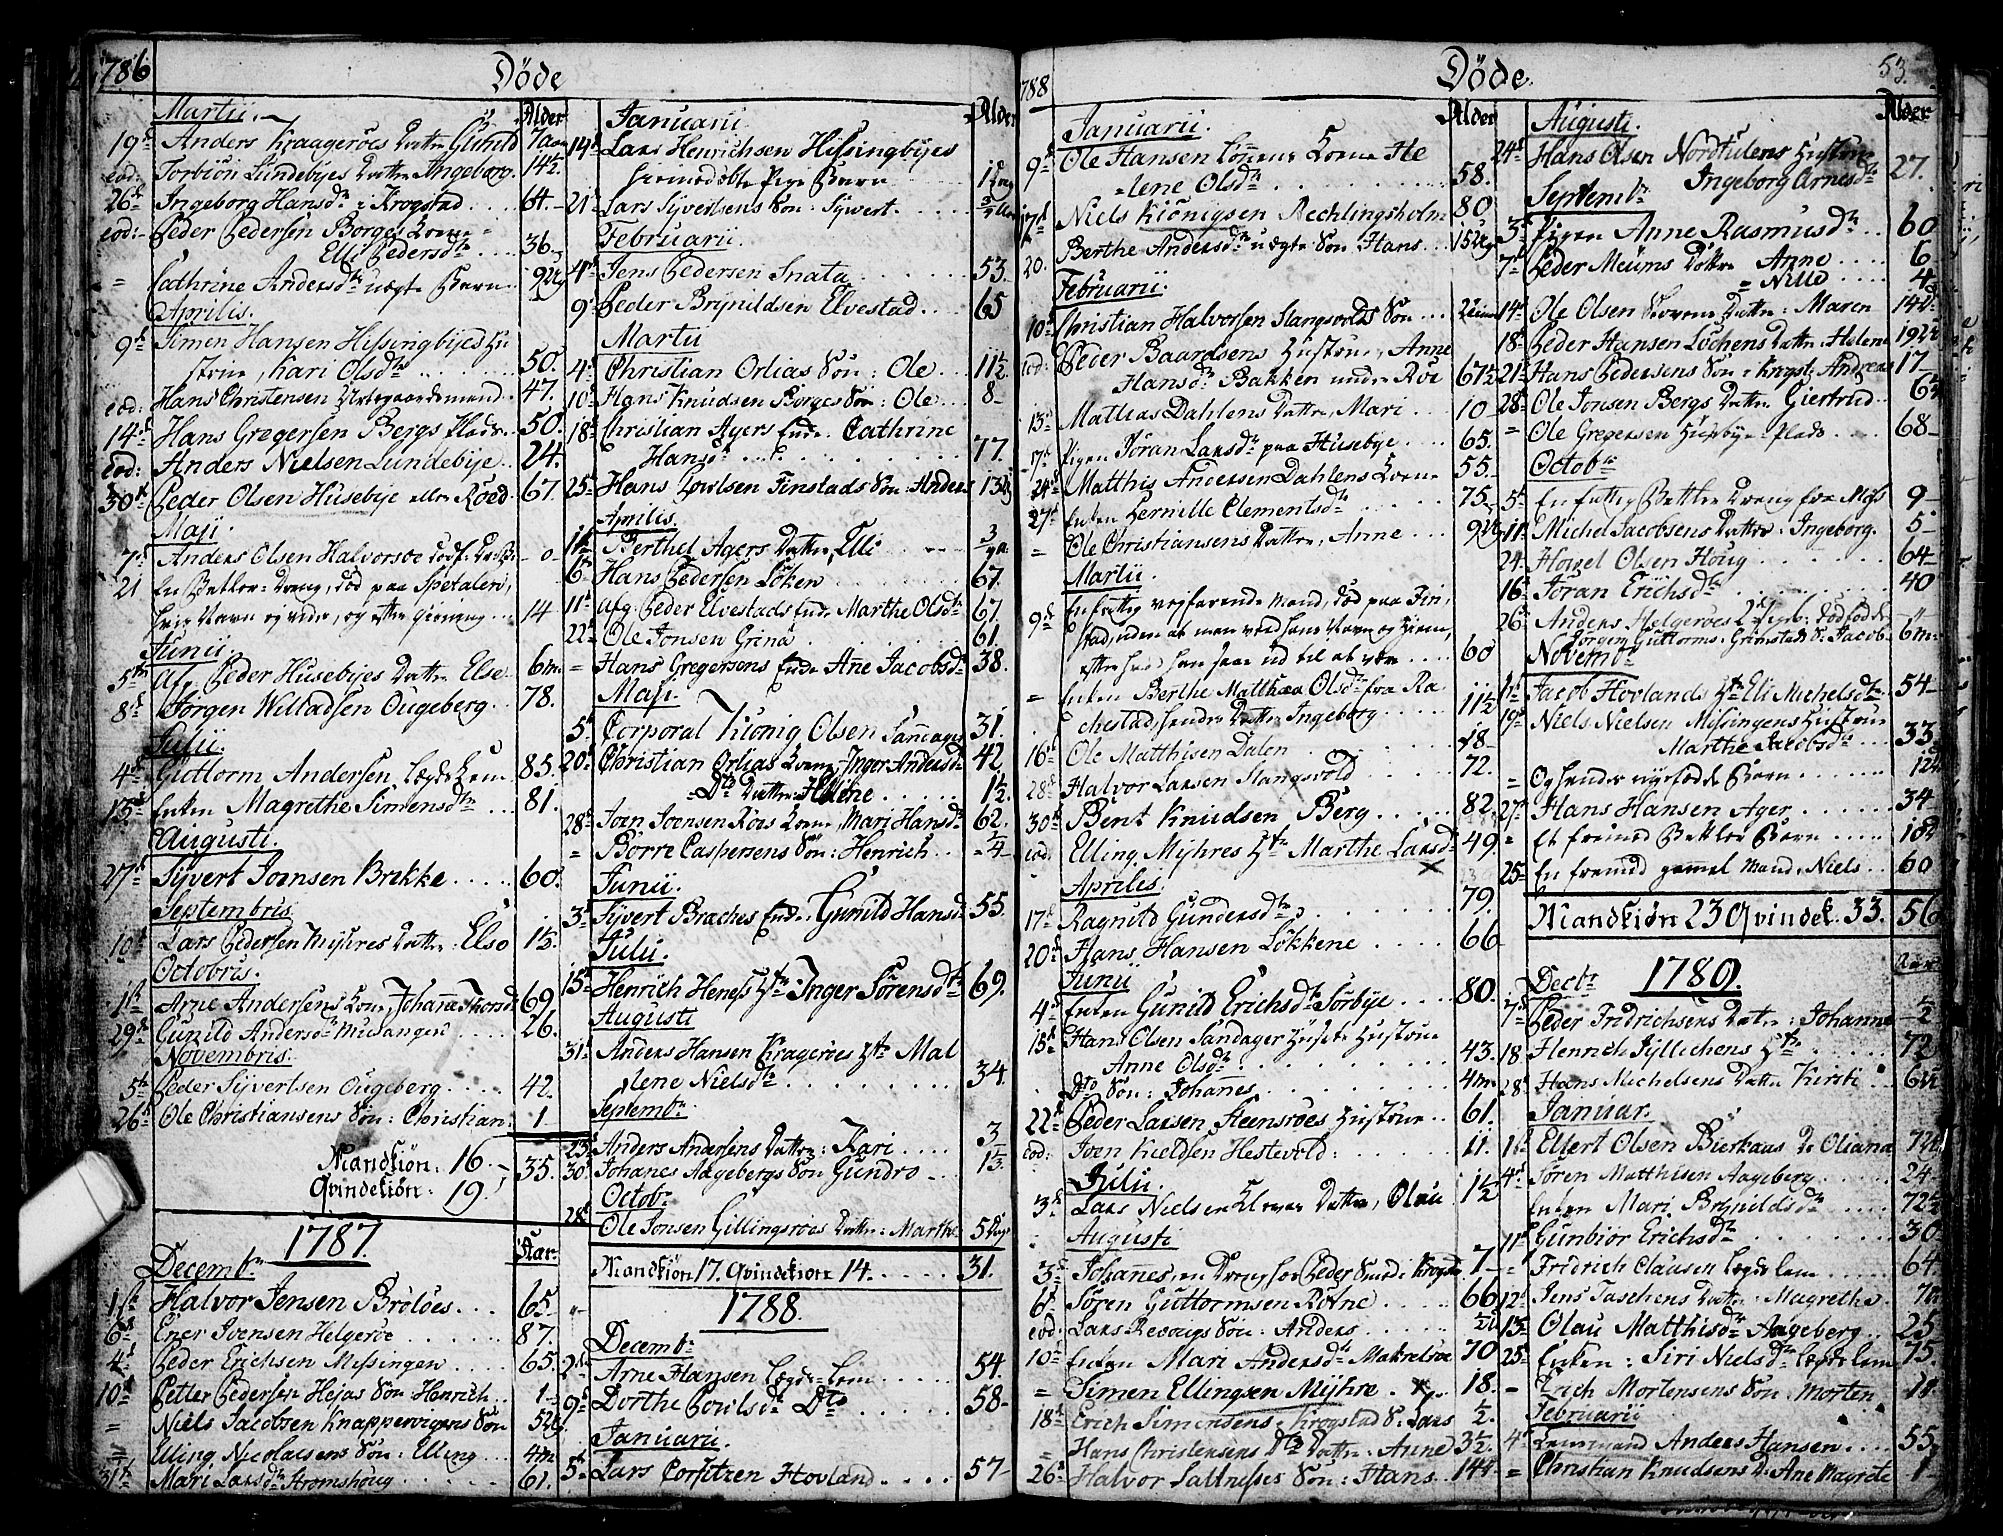 1786
Döde
Martii.
Alder
19d Anders Kraageröes Datter Gunild 7 aar
eod: Torbiön Lundebyes Datter Angeborg. 14½.
26d Ingeborg Hansdr Krogstad 64.
eod: Peder Pedersen Borges Kone
Elli Pedersdr 36.
= Cathrine Andersdr uægte Barn 9 Ug
Aprilis.
9d Simen Hansen Hissingbyes Hu
strue, Kari Olsdr 50.
eod: Hans Christensen 47.
14d Hans Gregersen Bergs Plads 50.
eod: Anders Nielsen Lundebye 24.
30d Peder Olsen Husebye eller Roed 67.
Maji
7d Anders Olsen Halvorsröe -0-
21 En Betler Dreng, död paa Spetalen,
14
Junii
5te Afg. Peder Husebyes Datter Else 6m
8d Jörgen Willadsen Ougeberg 78.
Julii.
4d Guttorm Andersen Lægdslem 85.
15d Enken Magrethe Simensdr 81.
Augusti.
27d Syvert Joensen Brekke 60.
Septembris
10d Lars Pedersen Myhres Datter: Else 1½
Octobris.
1st Arne Andersens Kone, Johanne Thorsdr 69
29d Gunild Andersdr Musangen 26.
Novembris.
5te Peder Syvertsen Ougeberg 42.
26d Ole Christiansens Sön: Christian: 1
Mandkiön: 16.
Qvindekiön: 19. 35.
1787.
Decembr
Aar
1st Halvor Jensen Brölöes 65
6d Ener Joensen Helgeröe 87.
4d Peder Erichsen Missingen 65.
10d Petter Pedersen Hejas Sön Henrich 1
= Niels Jacobsen Knappervigens Sön 5 Ug
= Elling Nicolaisens Sön: Elling 4m
31d Mari Larsdr Stromshoug 61.
Januarii.
Alder
14d Lars Henrichsen Hissingbyes
hiemedöbte Pige Barn 1 Dag
21d Lars Syvertsens Sön: Sywert.
Februarii.
4d Jens Pedersen Snata 53.
9d Peder Brynildsen Elvestad 65
Martii
4d Christian Orlias Sön: Ole 11½
10d Hans Knudsen Borges Sön: Ole 8
18d Christian Agers Enke Cathrine
Hansdr 77.
25d Hans Powlsen Finstads Sön: Anders 13 Ug
Aprilis.
1st Berthel Agers Datter, Elli
6te Hans Pedersen Löken 67.
11te Afg. Peder Elvestads Enke Marthe Olsdr 67
22d Ole Jonsen Grina 61.
= Hans Gregersens Enke Ane Jacobsdr 38.
Maji.
5te Corporal Kiönig Olsen 31.
20d Christian Orlias Kone, Inger Andersdr 42
Do Datter: Helene 1½.
28d Joen Joensen Röes Kone, Mari Hansdr 62.
= Börre Caspersens Sön: Henrich ¼
Junii.
3d Syvert Braches Enke, Gunild Hansdr 55.
Julii.
15d Henrich Heness Hst Inger Sörensdr 69.
Augusti
31d Anders Hansen Kragerøes Hst Mal
lene Nielsdr 34.
Septembr
23d Anders Andersens Datter: Kari 3
30. Johanes Aagebergs Sön Gundro
Octobr
28d Ole Jonsen Gillingsröes Datter: Marthe 5 Dage
Mandkiön 17. Qvindekiön 14. 31.
1788.
Decembr
2d Arne Hansen Lægdslem 54.
9d Dorthe Powlsdr Do 58
Januarii.
5te Lars Corfitzen Hovland 57
788
Döde.
53.
Januarii.
Alder
9d Ole Hansen Kone He
lene Olsdr 58.
17d Niels Kiönigsen Rechlingsholm 80
20. Berthe Andersdr uægte Sön Hans 15 Ug
Februarii.
10d Christian Halvorsen Slangsvolds Sön
eod: Peder Baardsens Hustrue, Anne
Hansdr Bakken under Röe 67½
13d Mathias Dahlens Datter, Mari 10
17d Pigen Jöran Larsdr paa Husebye 65.
24d Matthis Andersen Dahlens Kone 55.
27d Enken Pernille Clementsdr 75
= Ole Christiansens Datter, Anne 9 Ug
Martii.
9d En fattig vejfarende Mand, död paa Fin
stad, uden at man veed hans Navn og Hiem,
efter hvad han saae ud til at være 60
= Enken Berthe Matthæa Olsdr fra Ra
chestad, hendes Datter Ingeborg 11½
16d Ole Matthisen Dalen 48
28d Halvor Larsen Slangsvold 72.
30d Bent Knudsen Berg 82.
eod. Elling Myhres Hst Marthe Larsdr 49.
Aprilis.
17d Ragnild Gundersdr 79.
20d Hans Hansen Lökkene 66
Junii
4d Enken Gunild Erichsdr Sörbye 80.
15d Hans Olsen Sandager Hustrue
Anne Olsdr 43.
Do Sön: Johanes 4m
22d Peder Larsen Heensröes Hustrue 61.
eod: Joen Kieldsen Hestevold: 11.
Julii.
3d Lars Nielsen Datter, Olau 1½
Augusti
3d Johannes, en Dreng hos Peder Smed i Krogstad 7
6d Sören Guttormsen Rörne 66
eod: Lars Revougs Sön: Anders
10d Enken Mari Andersdr Makrelröe 70
= Simen Ellingsen Myhre 18.
18d Erich Simensens Krogstad S. Lars ½.
= Hans Christensens Do Datter: Anne 3½.
26d Halvor Saltnesses Sön: Hans
Augusti.
Alder
24d Hans Olsen Nordtulens Hustrue
Ingeborg Arnesdr 27.
Septembr
3d Pigen Anne Rasmusdr 60
7d Peder Meums Döttre Anne 6
= Nille 4
14d Ole Olsen Datter: Maren 14 D
18d Peder Hansen Löchens Datter: Helene 19 Ug
21d Hans Pedersens Sön i Krogst: Andreas 17
28d Ole Jonsen Bergs Datter Giertrud
= Ole Gregersen Husebye Plads 68
Octobr
5te En fattig Betler Dreng fra Moss 9
11te Michel Jacobsens Datter: Ingeborg. 5
24. Howel Olsen Houg 64
16d Jöran Erichsdr 40
26d Anders Helgeröes
Jörgen Guttorms: Grimstad S: Jacob 6m
Novembr
1st Jacob Hovlands Hst Eli Michelsdr 54
19d Niels Nielsen Missingens Hustrue
Marthe Jacobsdr 33
= Og hendes nyefödde Barn
27d Hans Hansen Ager 34
= Et fremd Betler Barn
25d En fremd gamel Mand, Niels 60
Mandkiön 23 Qvindek: 33. 56
Decbr 1789.
Aar
7d Peder Fridrichsens Datter: Johanne
18. Henrich Hst 72
28d Hans Michelsens Datter Kirsti
Januar.
1st Ellert Olsen Bierkaas D. Oliana
4d Sören Matthisen Aageberg 24
Enken Mari Brynildsdr 72½
11te Gunbiör Erichsdr 30
= Fridrich Clausen Lægdslem 64
12d Jens Taschens Datter: Magrethe
13d Olau Matthisdr Aageberg 25
25d Enken: Siri Nielsdr Lægdslem 75.
= Erich Mortensens Sön: Morten
Februarii
4d Lensmand Anders Hansen 55
= Christian Knudsens D. Ane Magrete 1